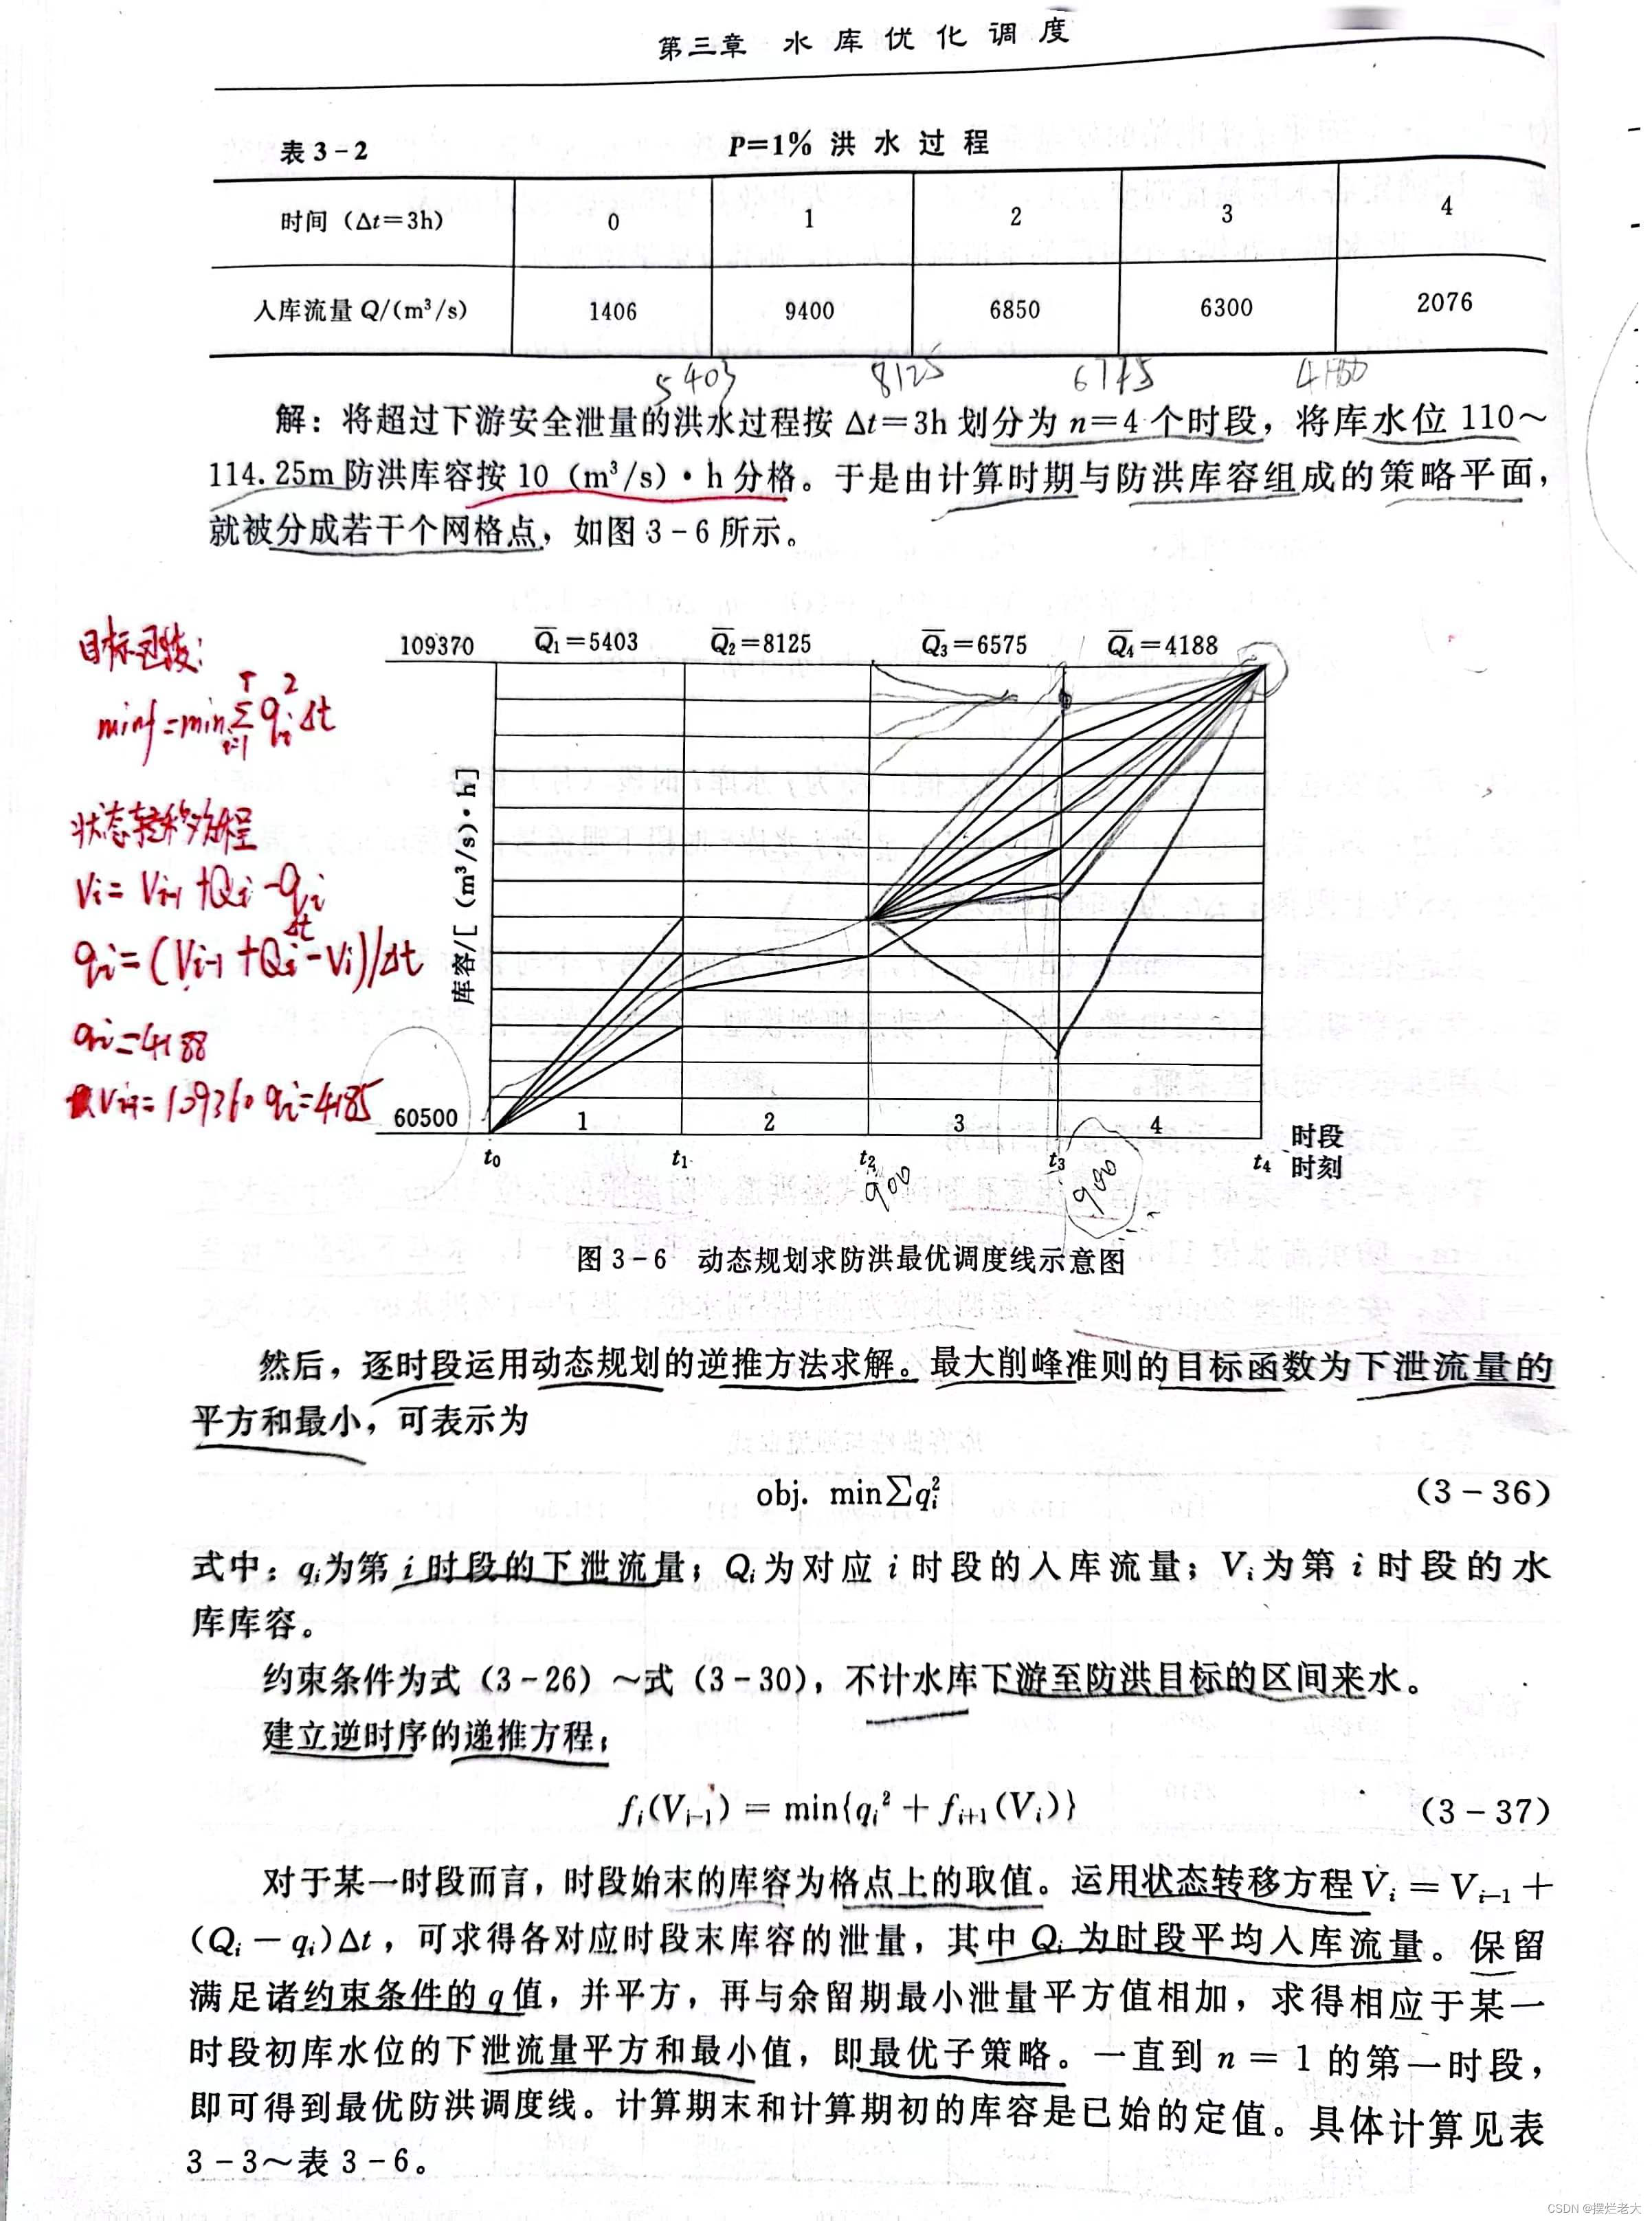 第三章 水库优化调度
表3-2 P=1%洪水过程
时间（Δt=3h） 0 1 2 3 4
入库流量Q/(m³/s) 1406 9400 6850 6300 2076
5403 8125 6775
解：将超过下游安全泄量的洪水过程按Δt=3h划分为n=4个时段，将库水位110～
114.25m防洪库容按10（m³/s）·h分格。于是由计算时期与防洪库容组成的策略平面，
就被分成若干个网格点，如图3-6所示。
目标函数：
minf=min Σ qi² Δt
T
i=1
状态转移方程
Vi= Vi-1 +Qi -qi
Δt
qi=(Vi-1 +Qi -Vi)/Δt
qi=4188
109360 qi=4185
109370 Q̄₁=5403 Q̄₂=8125 Q̄₃=6575 Q̄₄=4188
库容/[（m³/s）·h]
60500 1 2 3 4 时段
t₀ t₁ t₂ t₃ t₄ 时刻
900 900
图3-6 动态规划求防洪最优调度线示意图
然后，逐时段运用动态规划的逆推方法求解。最大削峰准则的目标函数为下泄流量的
平方和最小，可表示为
obj. min∑qᵢ² （3-36）
式中：qᵢ为第i时段的下泄流量；Qᵢ为对应i时段的入库流量；Vᵢ为第i时段的水
库库容。
约束条件为式（3-26）～式（3-30），不计水库下游至防洪目标的区间来水。
建立逆时序的递推方程：
fᵢ(Vᵢ₋₁) = min{qᵢ² + fᵢ₊₁(Vᵢ)} （3-37）
对于某一时段而言，时段始末的库容为格点上的取值。运用状态转移方程Vᵢ = Vᵢ₋₁ +
(Qᵢ - qᵢ)Δt，可求得各对应时段末库容的泄量，其中Qᵢ为时段平均入库流量。保留
满足诸约束条件的q值，并平方，再与余留期最小泄量平方值相加，求得相应于某一
时段初库水位的下泄流量平方和最小值，即最优子策略。一直到n=1的第一时段，
即可得到最优防洪调度线。计算期末和计算期初的库容是已始的定值。具体计算见表
3-3～表3-6。
CSDN @摆烂老大